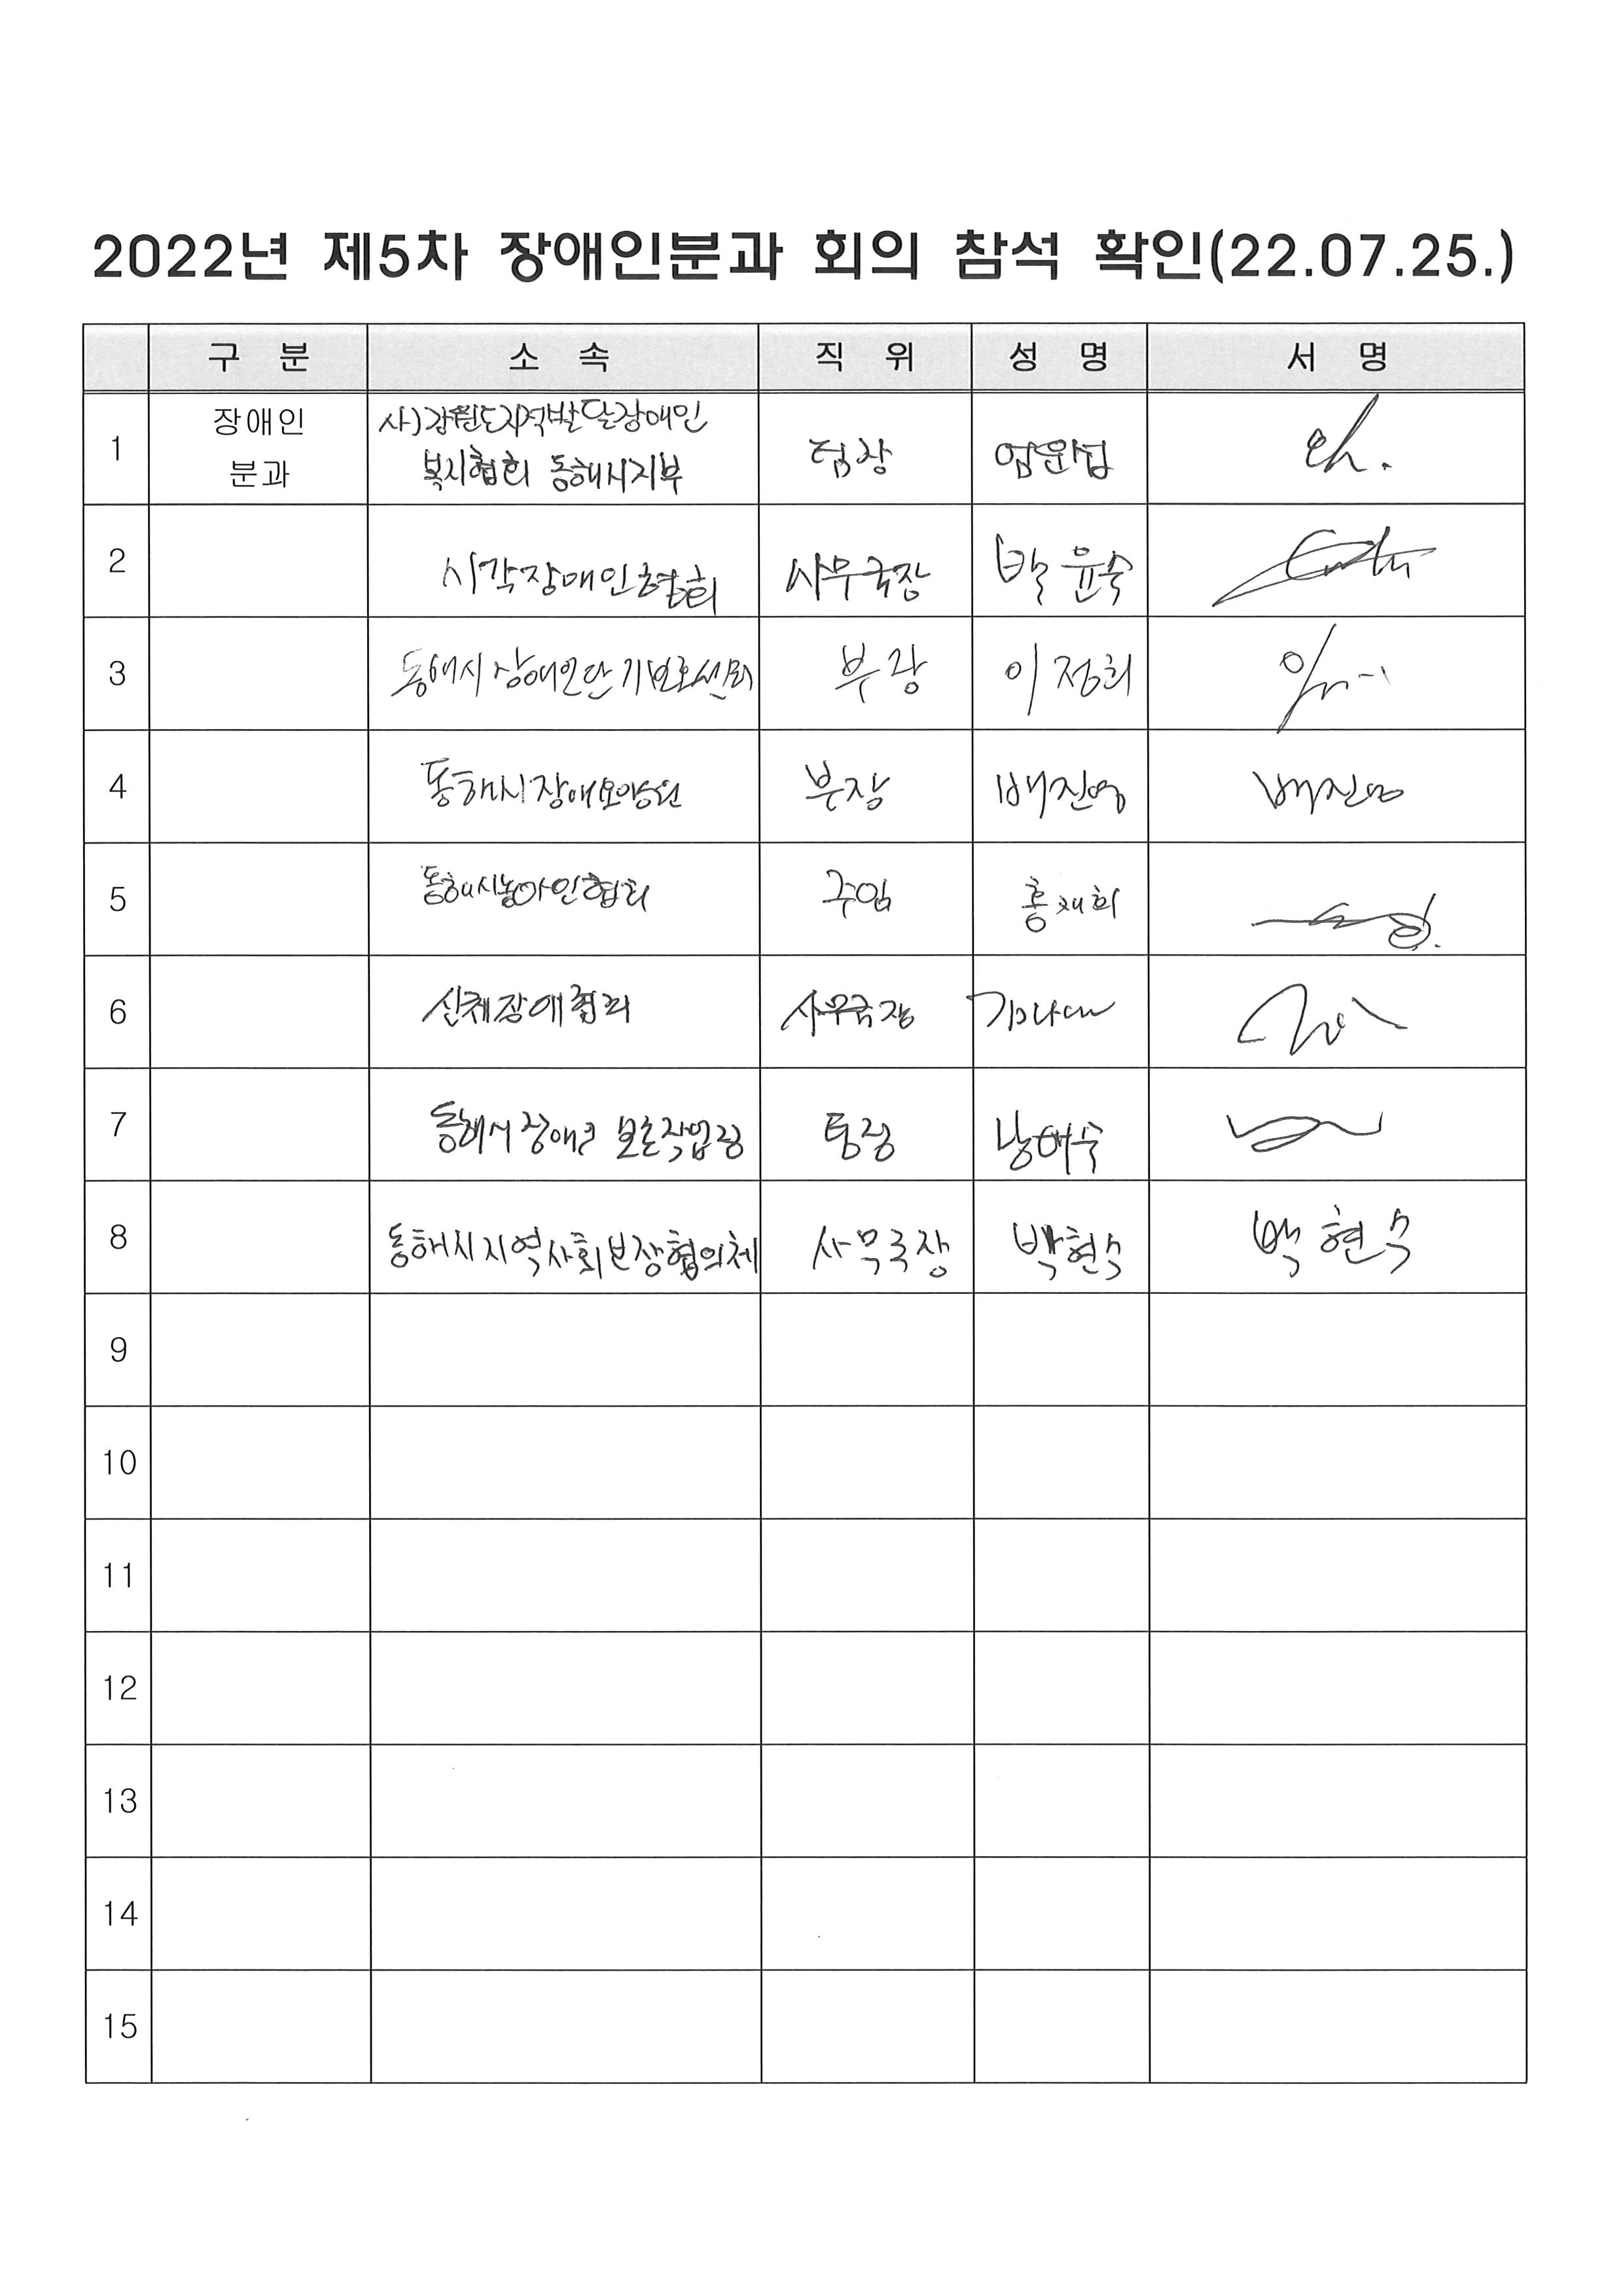 2022년 제5차 장애인분과 회의 참석 확인(22.07.25.)
구 분 소 속 직 위 성 명 서 명
1 장애인 분과 사)강원도지역발달장애인 복지협회 동해시지부 팀장
2 시각장애인협회 사무국장 박윤숙
3 동해시장애인단기보호센터 부장 이정희
4 동해시장애요양원 부장 배진영 배진영
5 동해시농아인협회 주임 홍재희
6 신체장애협회 사무국장
7 동해시장애인 보호작업장 팀장
8 동해시지역사회보장협의체 사무국장 박현숙 박현숙
9
10
11
12
13
14
15